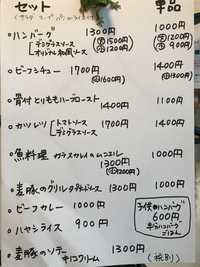 セット 単品
(サラダ スープ パン or ライス付)
・ハンバーグ 1300円 1000円
デミグラスソース (大1500円) (大1200円)
オリジナル和風ソース (小1200円) (小900円)
・ビーフシチュー 1700円 1400円
(小1600円) (小1300円)
・骨付とりももハーブロースト 1400円 1100円
・カツレツ トマトソース 1700円 1400円
デミグラスソース
・魚料理 カラスカレイのムニエル 1000円
1300円
(小1200円)
・麦豚のグリル 1300円 1000円
・ビーフカレー 1000円
・ハヤシライス 900円
子供用ハンバーグ
600円
ハンバーグ
ごはん
・麦豚のソテー 1300円
キノコクリーム (税別)